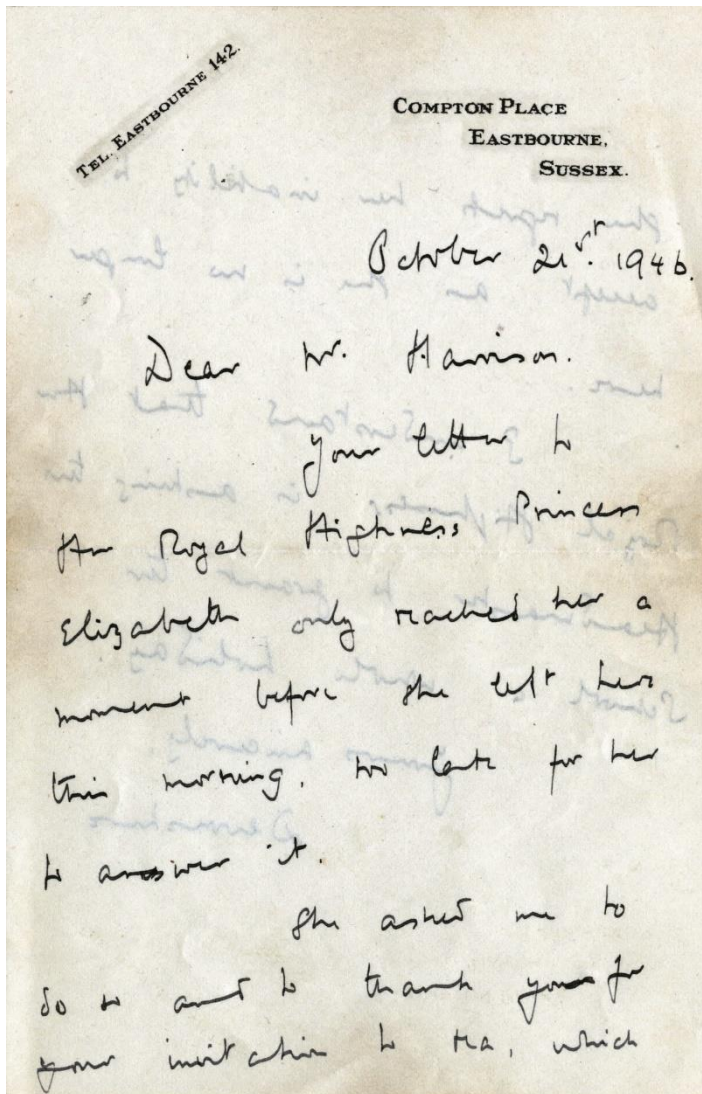 TEL. EASTBOURNE 142.
COMPTON PLACE
EASTBOURNE,
SUSSEX.
October 21st. 1946.
Dear Mr. Harrison.
Your letter to
Her Royal Highness Princess
Elizabeth only reached her a
moment before she left here
this morning, too late for her
to answer it.
She asked me to
do so and to thank you for
your invitation to tea, which